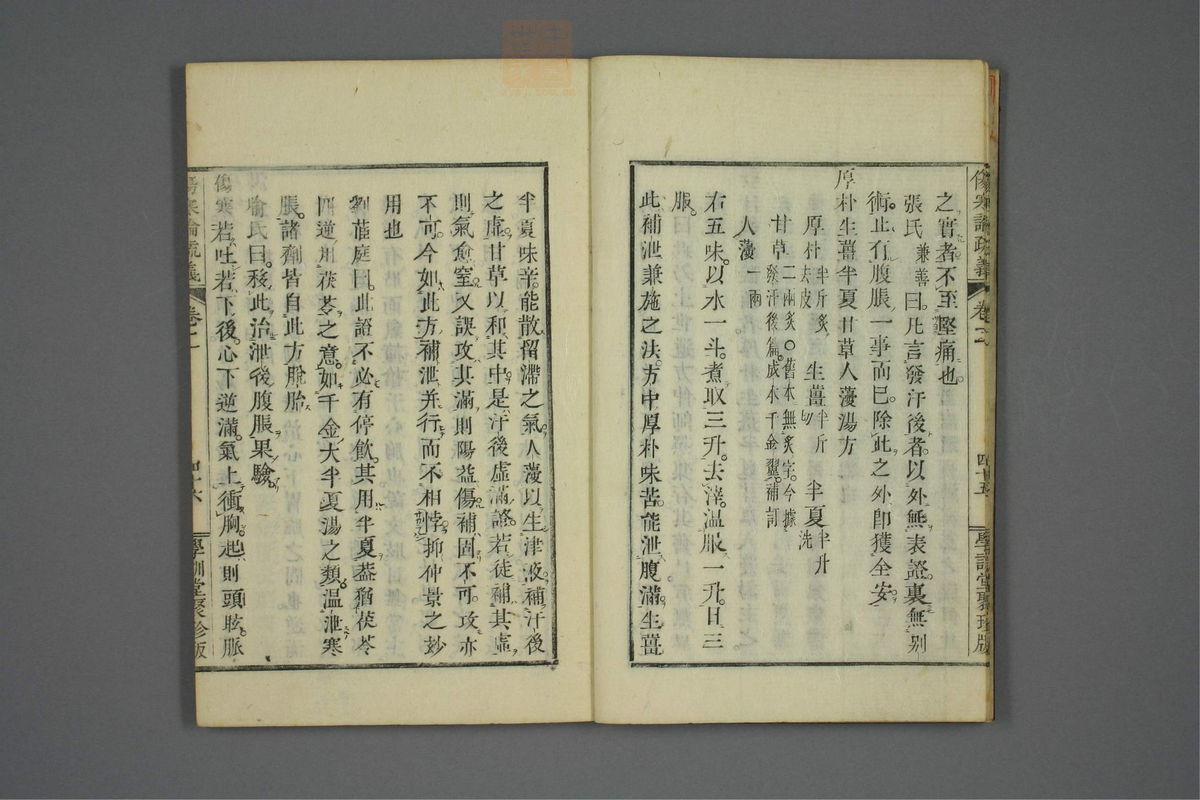 傷寒論疏義
卷之二
四十五
學訓堂聚珍版
之實者不至鞕痛也
張氏兼善曰凡言發汗後者以外無表證裏無别
術止有腹脹一事而已除此之外卽獲全安
厚朴生薑半夏甘草人薓湯方
厚朴半斤炙去皮 生薑半斤切 半夏半升洗
甘草二兩炙○舊本無炙字今據發汗後篇成本千金翼補訂
人薓一兩
右五味以水一斗煮取三升去滓溫服一升日三
服
此補泄兼施之法方中厚朴味苦能泄腹滿生薑
半夏味辛能散留滯之氣人薓以生津液補汗後
之虛甘草以和其中是汗後虛滿蹊若徒補其虛
則氣愈窒又誤攻其滿則陽益傷補固不可攻亦
不可今如此方補泄并行而不相悖抑仲景之妙
用也
劉茝庭曰此證不必有停飲其用半夏葢猶茯苓
四逆用茯苓之意如千金大半夏湯之類溫泄寒
脹諸劑皆自此方脫胎
喻氏曰移此治泄後腹脹果驗
傷寒若吐若下後心下逆滿氣上衝胸起則頭眩脈
傷寒論疏義
卷之二
四十六
學訓堂聚珍版